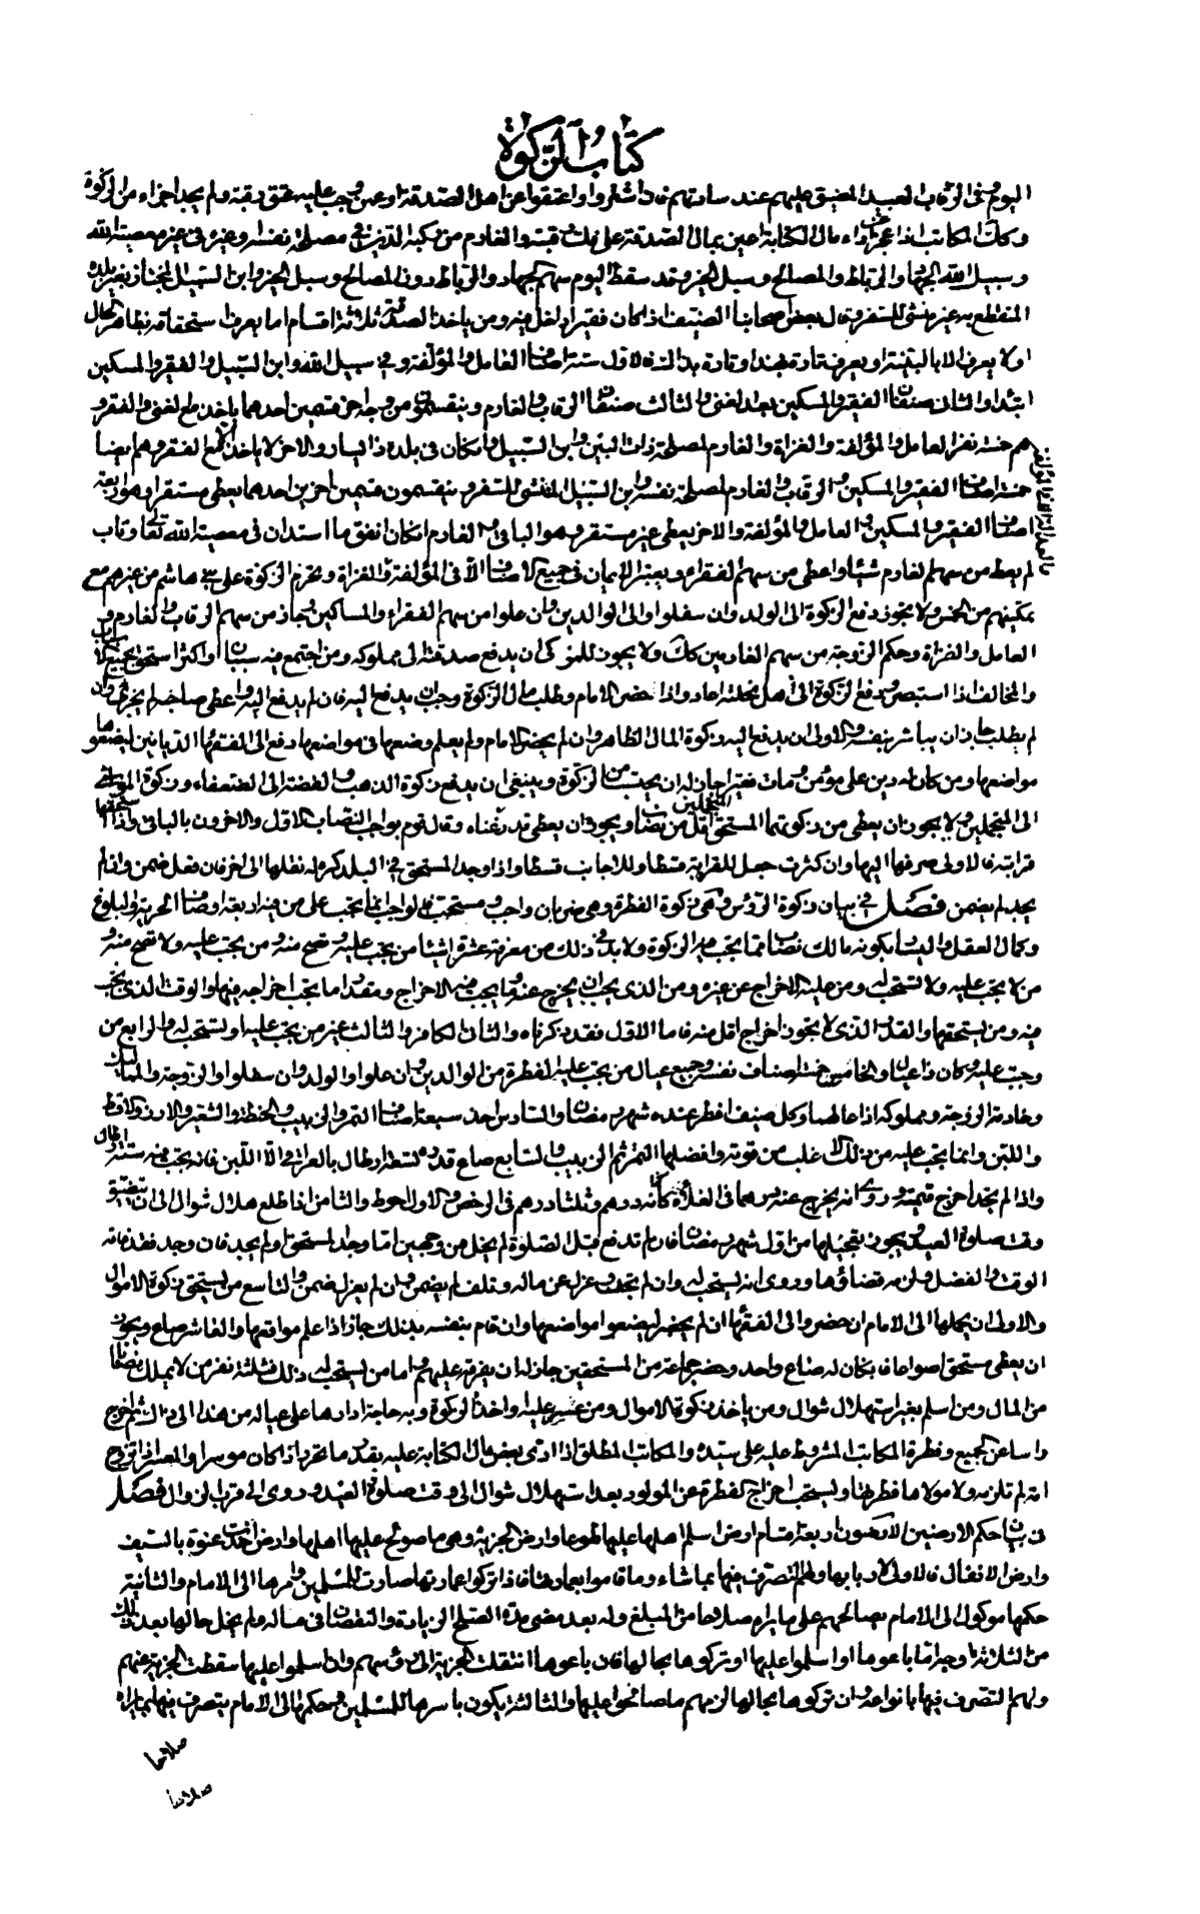 كتاب الزكوة
اليوم وفى الرقاب العبيد المضيق عليهم عند ساداتهم فاذا اشتروا واعتقوا من اهل الصدقة او عمن وجب عليه عتق رقبة ولم يجد اجزاء من الزكوة
وكك المكاتب اذا عجز عن اداء مال الكتابة اعين بمال الصدقة على فك رقبته والغارم من ركبه الدين فى مصلحة نفسه وغيره فى غير معصية الله
وسبيل الله الجهاد والرباط والمصالح وسبل الخير وقد سقط اليوم سهم الجهاد والرباط دون المصالح وسبل الخير وابن السبيل المجتاز بغير بلده
المنقطع به غير منشئ للسفر وقال بعض اصحابنا الضيف اذا كان فقيرا دخل فيه ومن ياخذ الصدقة ثلاثة اقسام اما يعرف استحقاقه بظاهر الحال
اولا يعرف الا بالبينة او يعرف تارة بهذا وتارة بذلك فالاول ستة اصناف العامل والمؤلفة وفى سبيل الله وابن السبيل والفقير والمسكين
ابتداء والثانى صنفان الفقير والمسكين بعد الغنى والثالث صنفان الرقاب والغارم وينقسمون من وجه اخر قسمين احدهما ياخذ مع الغنى والفقر و
هم خمسة نفر العامل والمؤلفة والغزاة والغارم لمصلحة ذات البين وابن السبيل اذا كان فى بلده ذا يسار والاخر لا ياخذ الا مع الفقر وهم ايضا
خمسة اصناف الفقير والمسكين والرقاب والغارم لمصلحة نفسه وابن السبيل المنشئ للسفر وينقسمون قسمين اخرين احدهما يعطى مستقرا وهو اربعة
اصناف الفقير والمسكين والعامل والمؤلفة والاخر يعطى غير مستقر وهو الباقى والغارم ان كان انفق ما استدان فى معصية الله تعالى وتاب
لم يعط من سهم الغارم شيئا واعطى من سهم الفقراء ويعتبر الايمان فى جميع الاصناف الا فى المؤلفة والغزاة وتحرم الزكوة على بنى هاشم من غيرهم مع
تمكينهم من الخمس ولا يجوز دفع الزكوة الى الولد وان سفلوا والى الوالدين وان علوا من سهم الفقراء والمساكين وجاز من سهم الرقاب والغارم و
العامل والغزاة وحكم الزوجة من سهم الغارمين كك ولا يجوز للمزكى ان يدفع صدقته الى مملوكه ومن اجتمع فيه سببان او اكثر استحق بجميع الاسباب
والمخالف اذا استبصر وقد دفع الزكوة الى اهل نحلته اعاد واذا حضر الامام وطلب مال الزكوة وجب ان يدفع اليه فان لم يدفع اليه واعطى صاحبه لم يجزئه وان
لم يطلب جاز ان يباشر بنفسه والاولى ان يدفع اليه زكوة المال الظاهر وان لم يحضر الامام ولم يعلم وضعها فى مواضعها دفع الى الفقهاء الديانين ليضعوها
مواضعها ومن كان له دين على مؤمن ومات فقيرا جاز له ان يحتسب من الزكوة وينبغى ان يدفع زكوة الذهب والفضة الى الضعفاء وزكوة المواشى
الى المتجملين ولا يجوز ان يعطى من زكوتهما المستحق اقل من نصاب ويجوز ان يعطى قدر غناه وقال قوم بواجب النصاب الاول والاخرون بالباقى واذا كان مستحقها
قرابته فالاولى صرفها اليها وان كثرت جعل للقرابة قسطا وللاجانب قسطا واذا وجد المستحق فى البلد كره له نقلها الى اخر فان فعل ضمن وان لم
يجد لم يضمن فصل فى بيان زكوة الرؤس وهى زكوة الفطرة وهى ضربان واجب ومستحب فالواجب انما يجب على من فيه اربعة اوصاف الحرية والبلوغ
وكمال العقل واليسار بكونه مالك نصاب مما يجب فيه الزكوة ولا بد فى ذلك من معرفة عشرة اشياء من يجب عليه وتصح منه ومن يجب عليه ولا تصح منه و
من لا يجب عليه ولا تستحب له ومن عليه الاخراج عن غيره ومن الذى يجب ان يخرج عنه وما يجب فيه الاخراج ومقدار ما يجب اخراجه فيها والوقت الذى يجب
فيه ومن يستحقها والقدر الذى لا يجوز اخراج اقل منه فاما الاول فقد ذكرناه والثانى الكافر والثالث غير من يجب عليه او تستحب له والرابع من
وجبت عليه وكان ذا عيال والخامس خمسة اصناف نفسه وجميع عيال من يجب عليه الفطرة من الوالدين وان علوا والولد وان سفلوا والزوجة والمماليك
وخادمة الزوجة ومملوكه اذا عالها وكل ضيف افطر عنده شهر رمضان والسادس احد سبعة اصناف التمر والزبيب والحنطة والشعير والارز والاقط
واللبن وانما يجب عليه من ذلك الاغلب من قوته وافضلها التمر ثم الزبيب والسابع صاع قدره تسعة ارطال بالعراقى الا اللبن فانه يجب فيه ستة ارطال
واذا لم يجد اخرج قيمته وروى انه يخرج عنه درهما فى الغلاء كان او ثلثا درهم فى الرخص والاول احوط والثامن اذا طلع هلال شوال الى ان يتضيق
وقت صلوة العيد ويجوز تعجيلها من اول شهر رمضان فان لم تدفع قبل الصلوة لم يخل من وجهين اما وجد المستحق او لم يجد فان وجد فقد فاته
الوقت والفضل ولزمه قضاؤها وروى انه يستحب له وان لم يجد وعزل عن ماله وتلف لم يضمن وان لم يعزل ضمن والتاسع من يستحق زكوة الاموال
والاولى ان يحملها الى الامام ان حضر والى الفقهاء ان لم يحضر ليضعوا مواضعها وان قام بنفسه بذلك جاز اذا علم مواقعها والعاشر صاع ويجوز
ان يعطى مستحق اصواعا فان كان له صاع واحد وحضر جماعة من المستحقين جاز له ان يفرقه عليهم واما من يستحب له ذلك فثلثة نفر من لا يملك نصابا
من المال ومن اسلم بغير استهلال شوال ومن ياخذ زكوة الاموال ومن عسر عليه واخذ الزكوة وبه حاجة ادارها على عياله من هذا الى ذاك ثم اخرج
راسا عن الجميع وفطرة المكاتب المشروط عليه على سيده والمكاتب المطلق اذا ادى بعض مال الكتابة عليه بقدر ما تحرر اذا كان موسرا والمعسر اذا تزوج
امة لم تلزمه ولا مولاها فطرتها ويستحب اخراج الفطرة عن المولود بعد استهلال شوال الى وقت صلوة العيد وروى الى قرب الزوال فصل
فى بيان احكم الارضين الارضون اربعة اقسام ارض اسلم اهلها عليها طوعا وارض الجزية وهى ما صولح عليها اهلها وارض اخذت عنوة بالسيف
وارض الانفال فالاولى لاربابها ولهم التصرف فيها بما شاء وما قاموا بعمارتها فاذا تركوا عمارتها صارت للمسلمين وامرها الى الامام والثانية
حكمها موكول الى الامام يصالحهم على ما يراه صلاحا من المبلغ وله بعد مضى مدة الصلح الزيادة والنقصان فى ماله ولم يخل حالها بعد ذلك
من ثلاثة اوجه اما باعوها او اسلموا عليها او تركوها بحالها فان باعوها انتقلت الجزية الى رؤسهم وان اسلموا عليها سقطت الجزية عنهم
ولهم التصرف فيها بانواعه وان تركوها بحالها لزمهم ما صالحوا عليها والثالثة يكون باسرها للمسلمين وحكمها الى الامام يتصرف فيها بما يراه
صلاحا
صلاحا